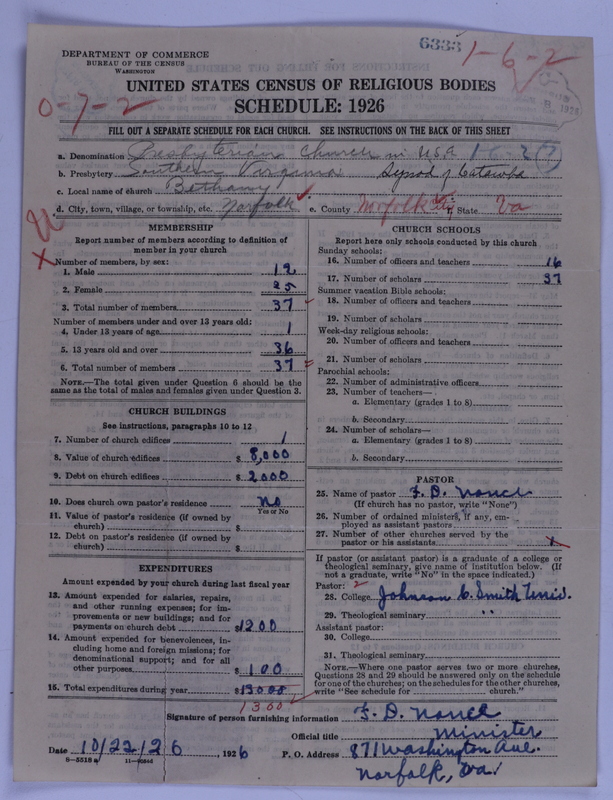 DEPARTMENT OF COMMERCE
BUREAU OF THE CENSUS
WASHINGTON
6333
1-6-2
0-7-2
UNITED STATES CENSUS OF RELIGIOUS BODIES
SCHEDULE: 1926
FILL OUT A SEPARATE SCHEDULE FOR EACH CHURCH. SEE INSTRUCTIONS ON THE BACK OF THIS SHEET
a. Denomination Presbyterian Church in U.S.A
b. Presbytery Southern Virginia Synod of Catawba
c. Local name of church Bethany
d. City, town, village, or township, etc. Norfolk e. County Norfolk City f. State Va
MEMBERSHIP
Report number of members according to definition of member in your church
Number of members, by sex:
1. Male 12
2. Female 25
3. Total number of members 37
Number of members under and over 13 years old:
4. Under 13 years of age 1
5. 13 years old and over 36
6. Total number of members 37
NOTE.—The total given under Question 6 should be the same as the total of males and females given under Question 3.
CHURCH BUILDINGS
See instructions, paragraphs 10 to 12
7. Number of church edifices 1
8. Value of church edifices $ 8,000
9. Debt on church edifices $ 2000
10. Does church own pastor's residence No
Yes or No
11. Value of pastor's residence (if owned by church) $
12. Debt on pastor's residence (if owned by church) $
EXPENDITURES
Amount expended by your church during last fiscal year
13. Amount expended for salaries, repairs, and other running expenses; for improvements or new buildings; and for payments on church debt $1200
14. Amount expended for benevolences, including home and foreign missions; for denominational support; and for all other purposes $ 100
15. Total expenditures during year $13000
1300
CHURCH SCHOOLS
Report here only schools conducted by this church
Sunday schools:
16. Number of officers and teachers 16
17. Number of scholars 37
Summer vacation Bible schools:
18. Number of officers and teachers
19. Number of scholars
Week-day religious schools:
20. Number of officers and teachers
21. Number of scholars
Parochial schools:
22. Number of administrative officers
23. Number of teachers—
a. Elementary (grades 1 to 8)
b. Secondary
24. Number of scholars—
a. Elementary (grades 1 to 8)
b. Secondary
PASTOR
25. Name of pastor F. D. Nance
(If church has no pastor, write "None")
26. Number of ordained ministers, if any, employed as assistant pastors
27. Number of other churches served by the pastor or his assistants x
If pastor (or assistant pastor) is a graduate of a college or theological seminary, give name of institution below. (If not a graduate, write "No" in the space indicated.)
Pastor: 2
28. College Johnson C. Smith Univ.
29. Theological seminary "
Assistant pastor:
30. College
31. Theological seminary
NOTE.—Where one pastor serves two or more churches, Questions 28 and 29 should be answered only on the schedule for one of the churches; on the schedules for the other churches, write "See schedule for church."
Signature of person furnishing information F. D. Nance
Official title Minister
Date 10/22/26, 1926 P. O. Address 871 Washington Ave.
Norfolk, Va.